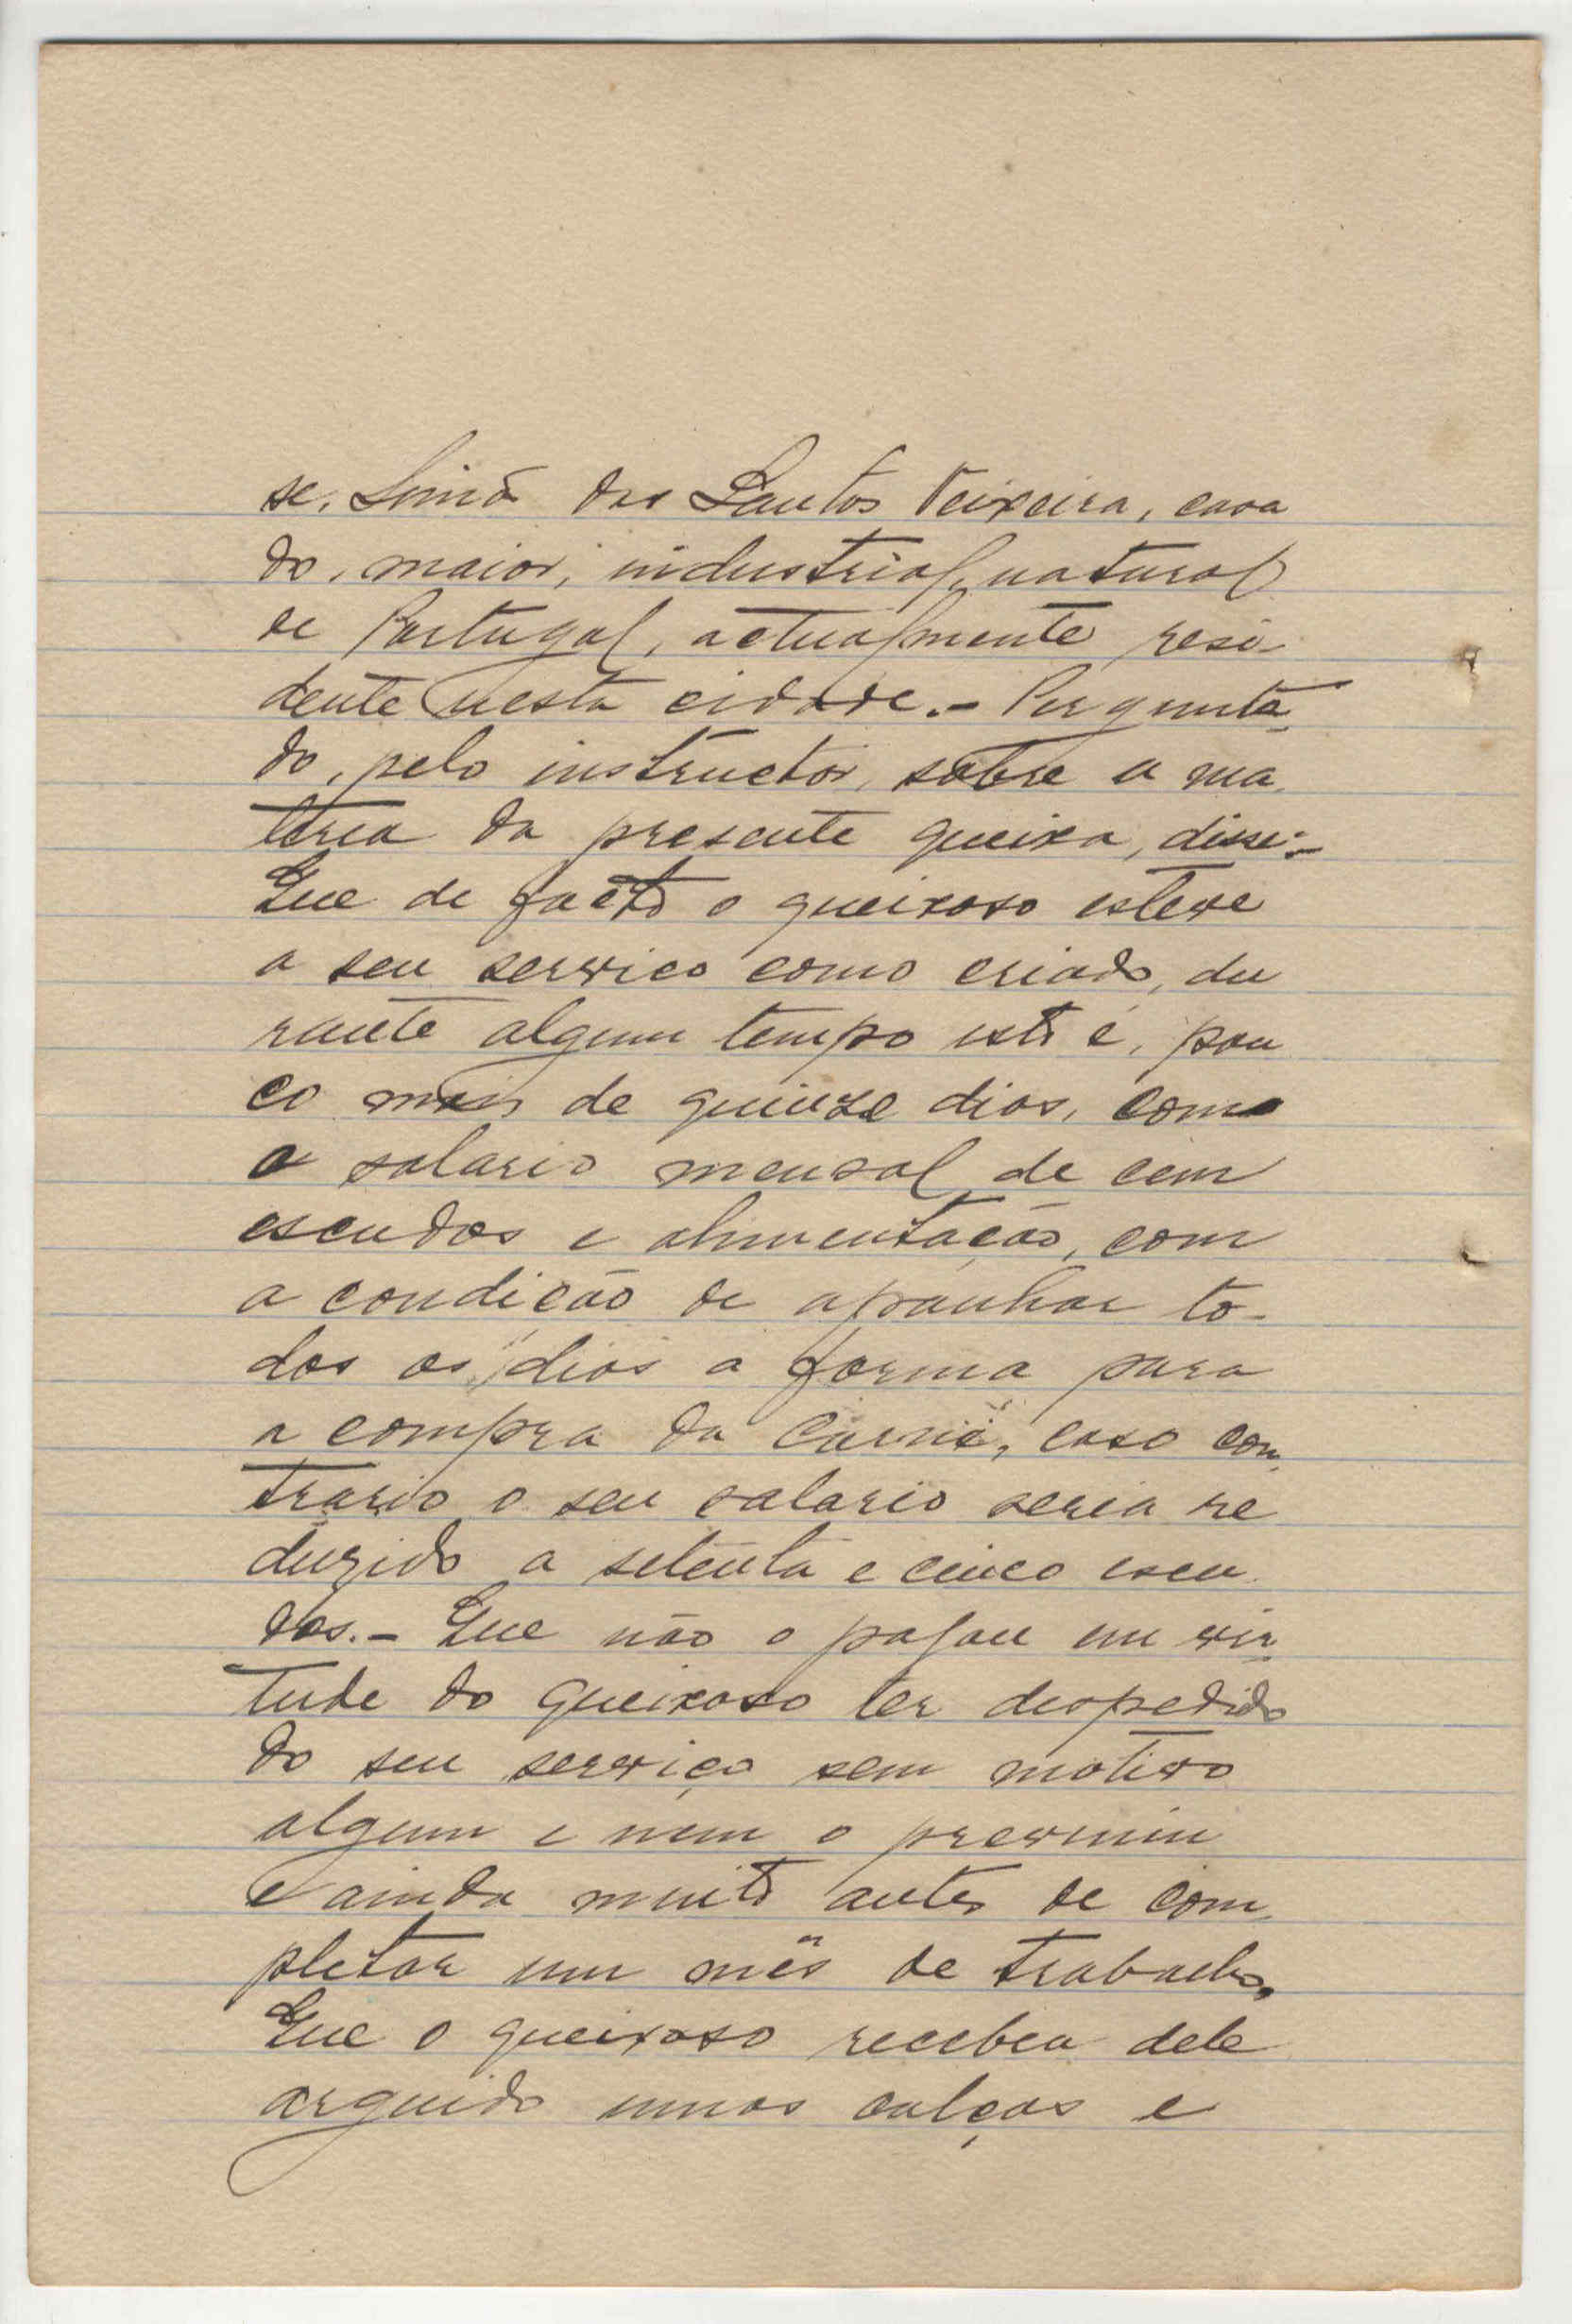 se, Simão dos Santos Teixeira, casa
do, maior, industrial, natural
de Portugal, actualmente resi-
dente nesta cidade.- Pergunta-
do, pelo instructor, sobre a ma-
teria da presente queixa, disse:-
Que de facto o queixoso esteve
a seu serviço como criado, du
rante algum tempo isto é, pou
co mais de quinze dias, com
o salario mensal de cem
escudos e alimentação, com
a condição de apanhar to-
dos os dias a forma para
a compra da carne, caso con-
trario o seu salario seria re
duzido a setenta e cinco escu
dos.- Que não o pagou em vir-
tude do queixoso ter despedido
do seu serviço sem motivo
algum e nem o preveniu
e ainda muito antes de com-
pletar um mês de trabalho.
Que o queixoso recebeu dele
arguido umas calças e